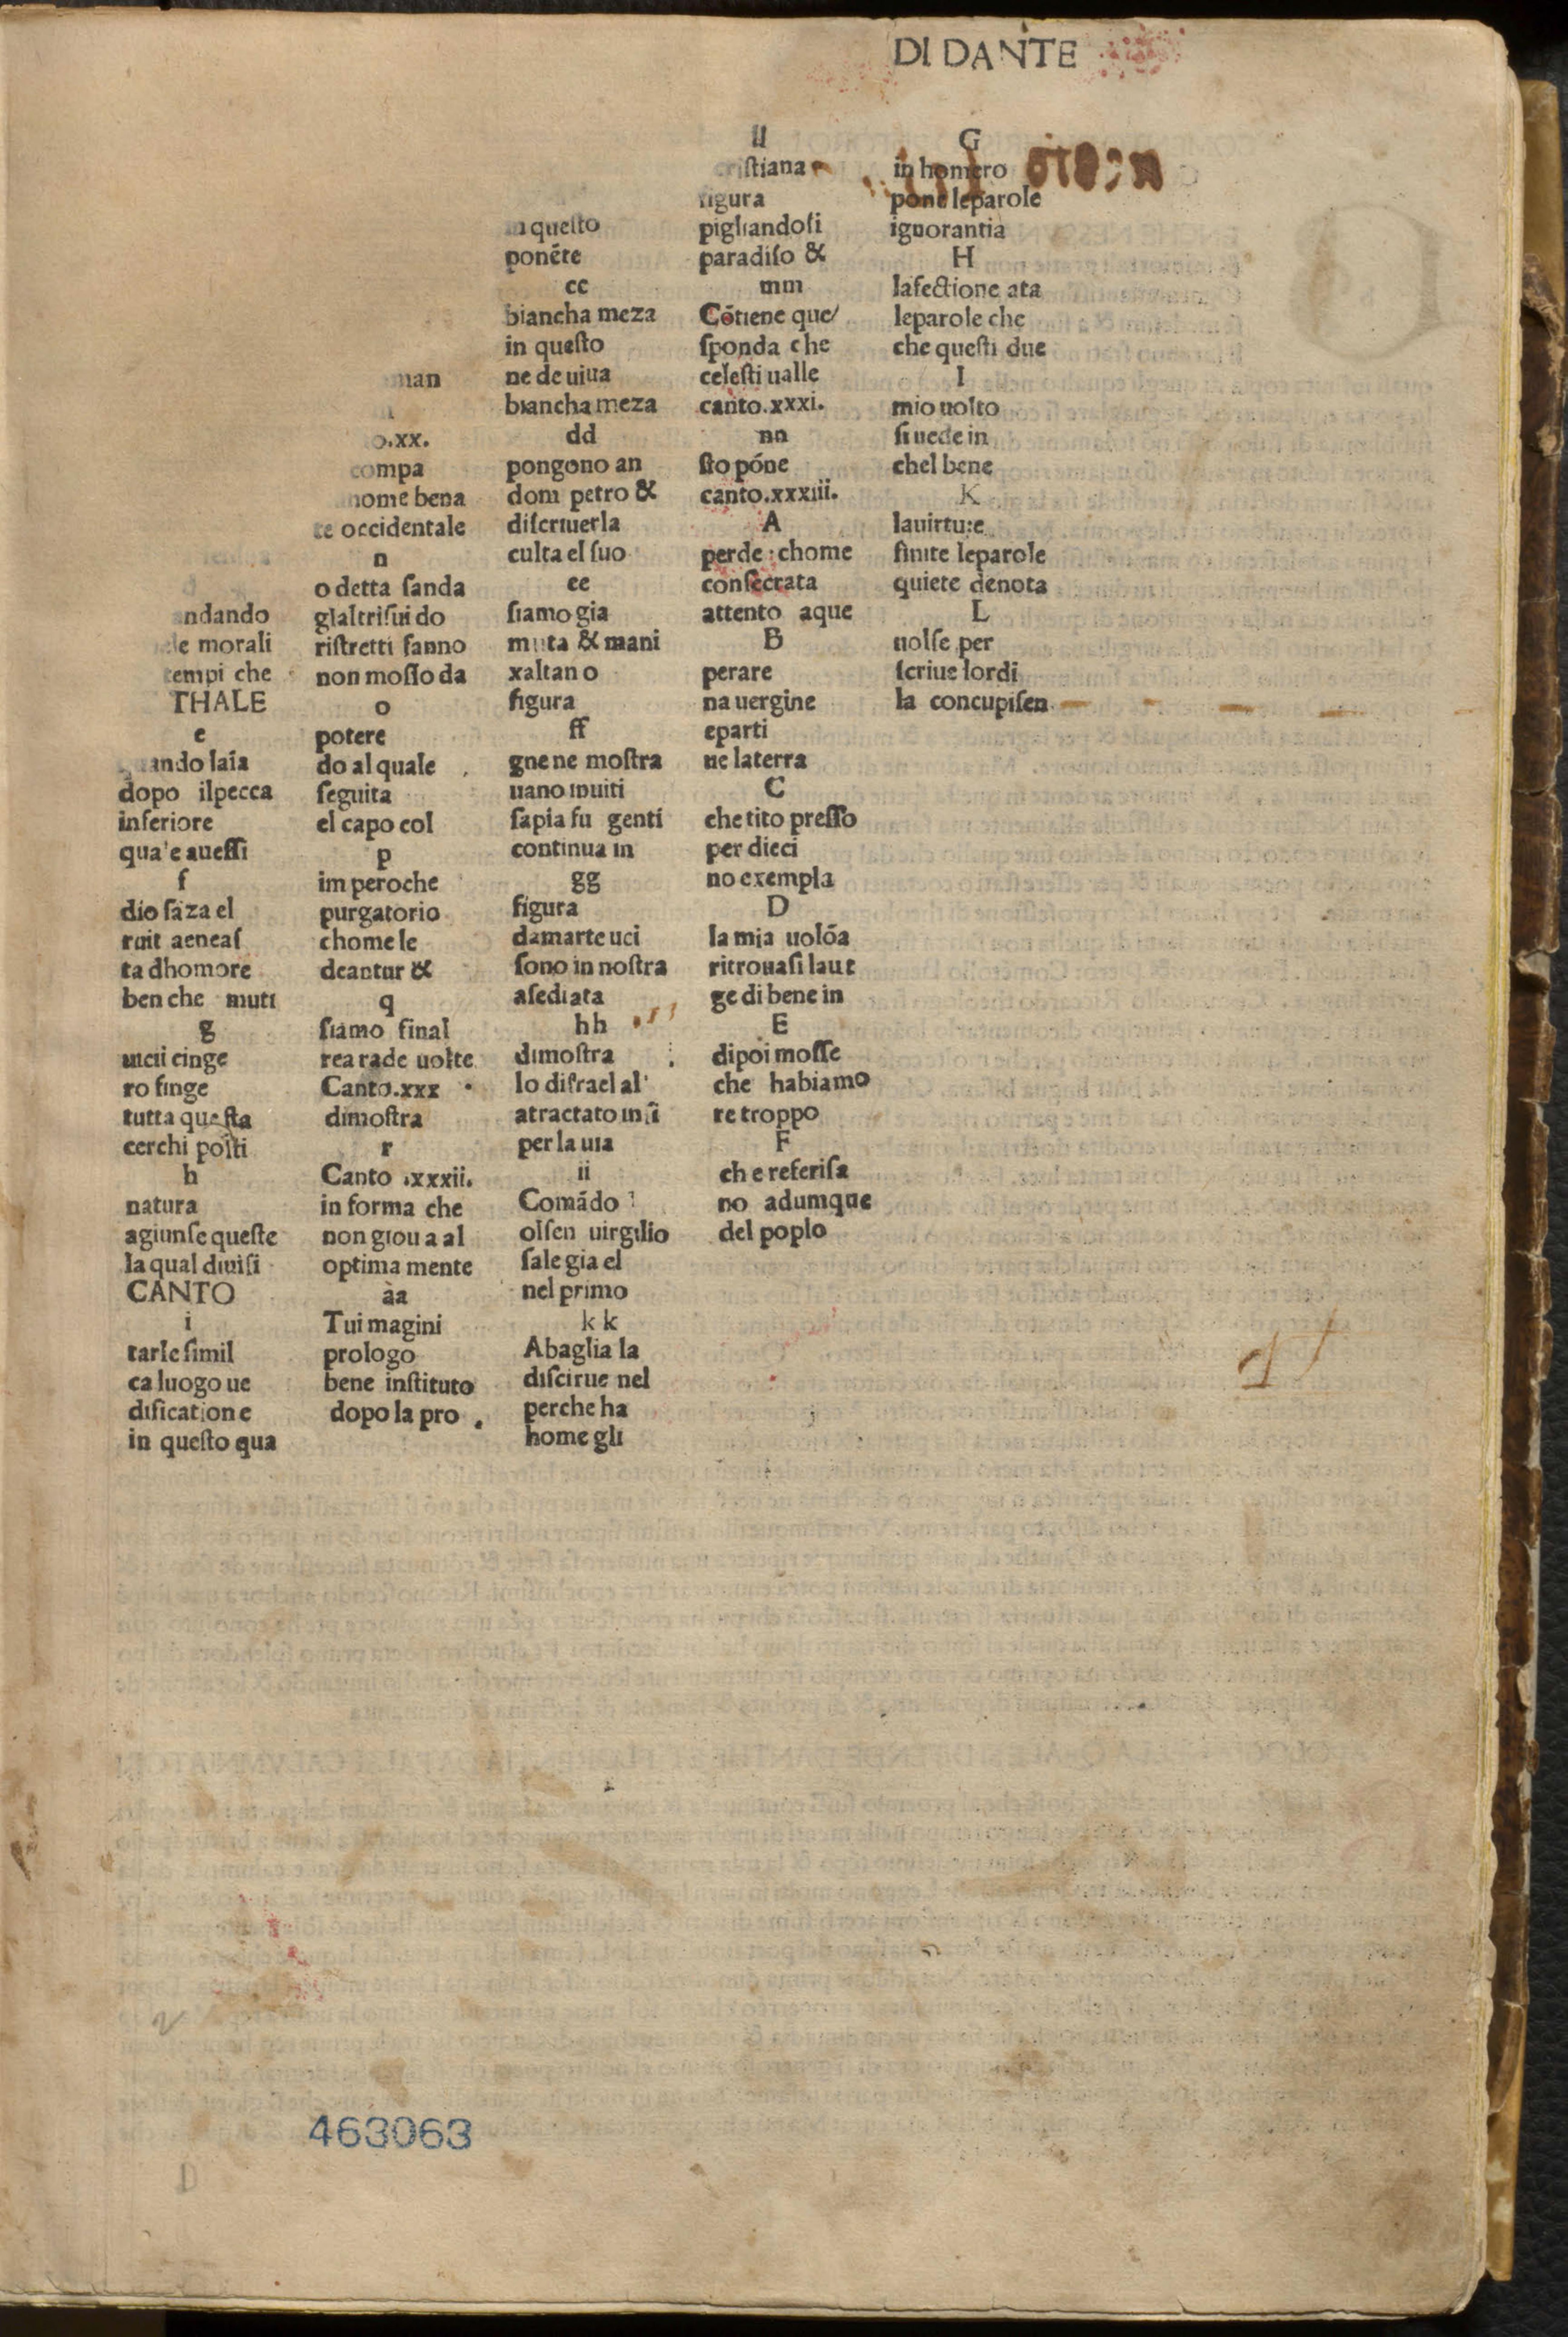 DI DANTE
ndando
morali
tempi che
THALE
e
ando laía
dopo ilpecca
inferiore
qua'e aueſſi
f
dio ſáza el
ruit aeneaſ
ta dhomore
ben che muti
g
uicii cinge
ro finge
tutta queſta
cerchi poſti
h
natura
agiunſe queſte
la qual diuiſi
CANTO
i
tarle ſimil
ca luogo ue
dificatione
in queſto qua
man
o.xx.
compa
nome bena
te occidentale
n
o detta ſanda
glaltri ſui do
riſtretti fanno
non moſſo da
o
potere
do al quale
ſeguita
el capo col
p
im peroche
purgatorio
chome le
deantur &
q
ſiamo final
rea rade uolte
Canto.xxx
dimoſtra
r
Canto .xxxii.
in forma che
non gioua al
optima mente
aa
Tui magini
prologo
bene inſtituto
dopo la pro
queſto
ponéte
cc
biancha meza
in queſto
ne de uiua
biancha meza
dd
pongono an
dom petro &
diſcriuerla
culta el ſuo
ee
ſiamo gia
muta & mani
xaltano
figura
ff
gne ne moſtra
uano inuiti
ſapia fu genti
continua in
gg
figura
damarte uci
ſono in noſtra
aſediata
hh
dimoſtra
lo diſrael al
atractato in
per la uia
ii
Comádo
olſen uirgilio
ſale gia el
nel primo
kk
Abaglia la
diſcirue nel
perche ha
home gli
ll
criſtiana
figura
pigliandoſi
paradiſo &
mm
Cótiene que/
ſponda che
celeſti ualle
canto.xxxi.
nn
ſto póne
canto.xxxiii.
A
perde : chome
conſecrata
attento aque
B
perare
na uergine
eparti
ne laterra
C
che tito preſſo
per dieci
no exempla
D
la mia uolóa
ritrouaſi laut
ge di bene in
E
dipoi moſſe
che habiamo
re troppo
F
ch e referiſa
no adumque
del poplo
G
in homero
pone leparole
ignorantia
H
lafectione ata
leparole che
che queſti due
I
mio uolto
ſi uede in
chel bene
K
lauirtute
finite leparole
quiete denota
L
uolſe per
ſcriue lordi
la concupiſen
463063